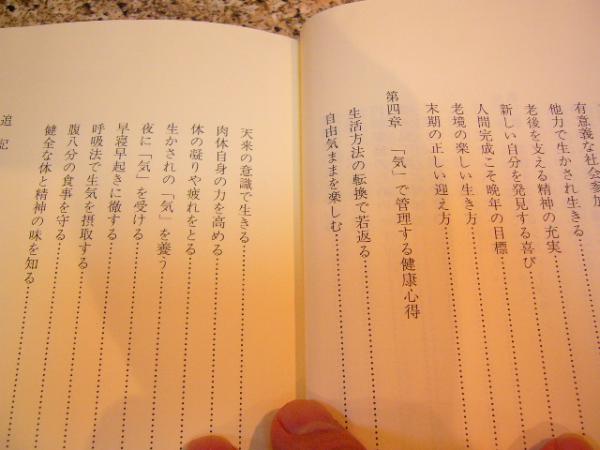 有意義な社会参加
他力で生かされ生きる
老後を支える精神の充実
新しい自分を発見する喜び
人間完成こそ晩年の目標
老境の楽しい生き方
末期の正しい迎え方
第四章　「気」で管理する健康心得
生活方法の転換で若返る
自由気ままを楽しむ
天来の意識で生きる
肉体自身の力を高める
体の凝りや疲れをとる
生かされの「気」を養う
夜に「気」を受ける
早寝早起きに徹する
呼吸法で生気を摂取する
腹八分の食事を守る
健全な体と精神の味を知る
追　記